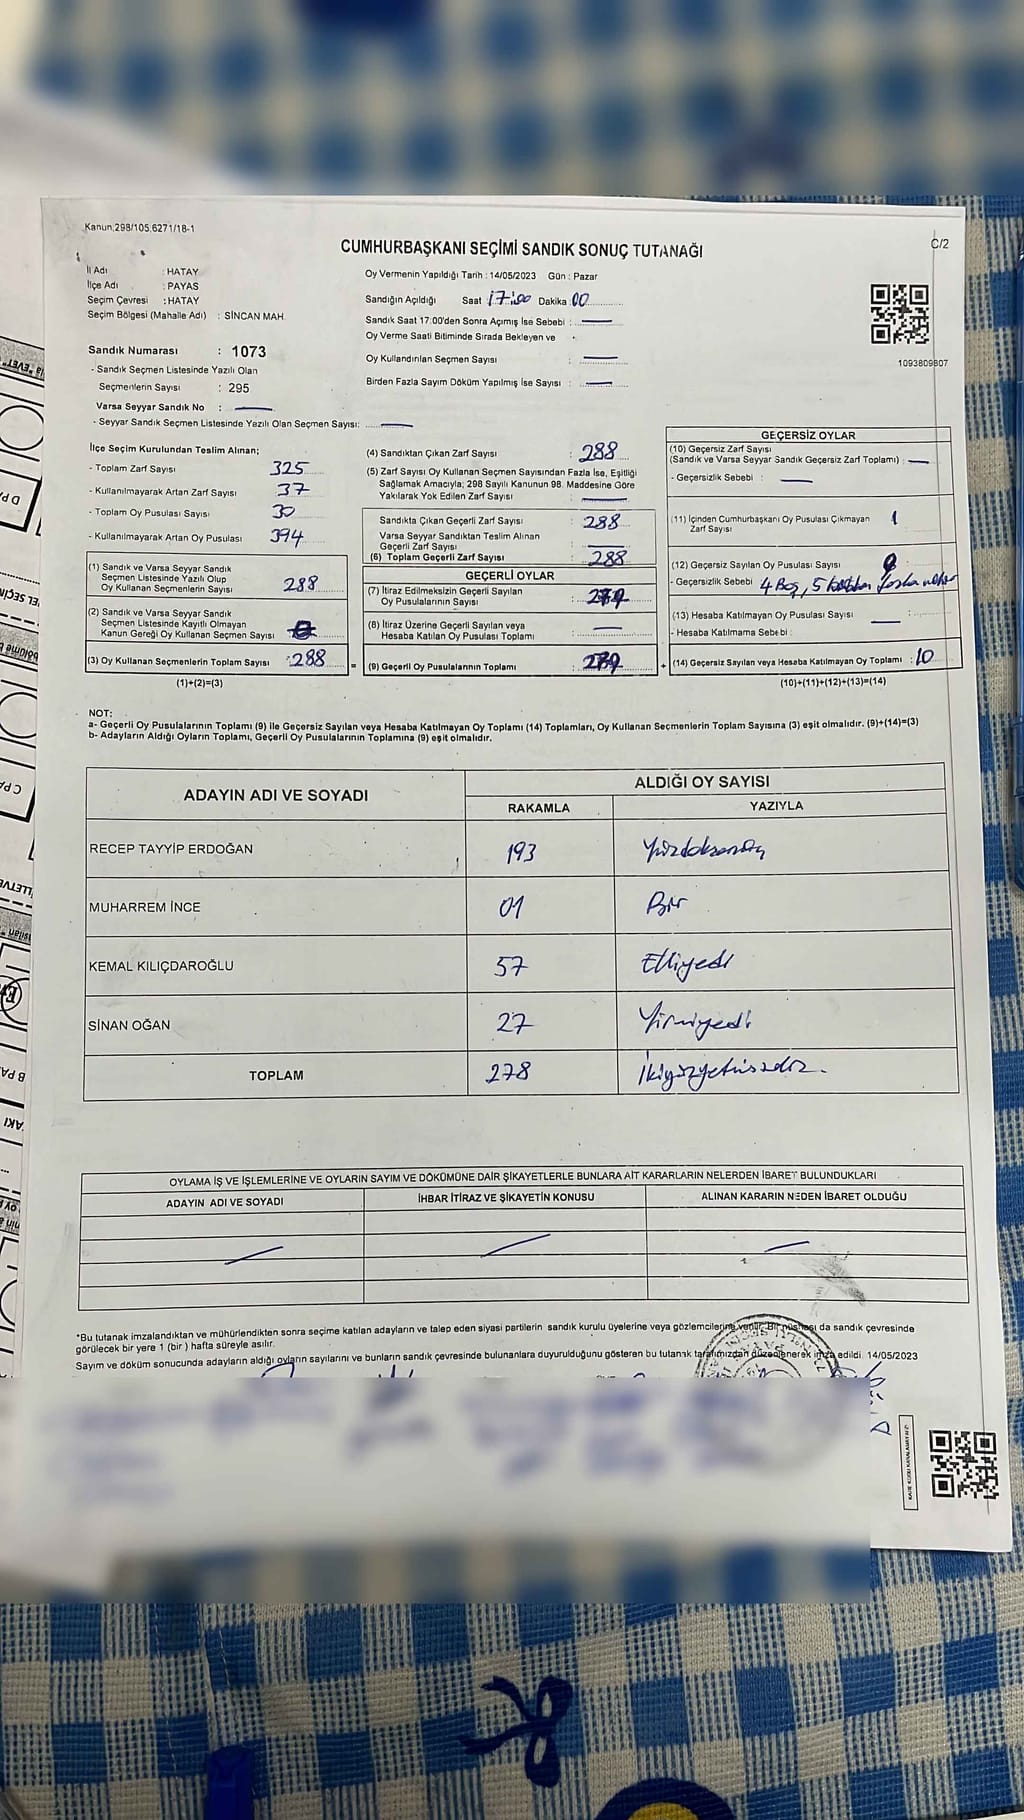 Kanun:298/105.6271/18-1
C/2
CUMHURBAŞKANI SEÇİMİ SANDIK SONUÇ TUTANAĞI
İl Adı : HATAY
İlçe Adı : PAYAS
Seçim Çevresi : HATAY
Seçim Bölgesi (Mahalle Adı) : SİNCAN MAH.
Sandık Numarası : 1073
- Sandık Seçmen Listesinde Yazılı Olan
Seçmenlerin Sayısı : 295
Varsa Seyyar Sandık No :
- Seyyar Sandık Seçmen Listesinde Yazılı Olan Seçmen Sayısı:
Oy Vermenin Yapıldığı Tarih : 14/05/2023 Gün : Pazar
Sandığın Açıldığı Saat 17:00 Dakika :00
Sandık Saat 17:00'den Sonra Açımış İse Sebebi :
Oy Verme Saati Bitiminde Sırada Bekleyen ve
Oy Kullandırılan Seçmen Sayısı :
Birden Fazla Sayım Döküm Yapılmış İse Sayısı :
1093809807
İlçe Seçim Kurulundan Teslim Alınan;
- Toplam Zarf Sayısı 325
- Kullanılmayarak Artan Zarf Sayısı 37
- Toplam Oy Pusulası Sayısı 30
- Kullanılmayarak Artan Oy Pusulası 394
(1) Sandık ve Varsa Seyyar Sandık
Seçmen Listesinde Yazılı Olup
Oy Kullanan Seçmenlerin Sayısı 288
(2) Sandık ve Varsa Seyyar Sandık
Seçmen Listesinde Kayıtlı Olmayan
Kanun Gereği Oy Kullanan Seçmen Sayısı
(3) Oy Kullanan Seçmenlerin Toplam Sayısı :288
(1)+(2)=(3)
(4) Sandıktan Çıkan Zarf Sayısı : 288
(5) Zarf Sayısı Oy Kullanan Seçmen Sayısından Fazla İse, Eşitliği
Sağlamak Amacıyla; 298 Sayılı Kanunun 98. Maddesine Göre
Yakılarak Yok Edilen Zarf Sayısı :
Sandıkta Çıkan Geçerli Zarf Sayısı : 288
Varsa Seyyar Sandıktan Teslim Alınan
Geçerli Zarf Sayısı :
(6) Toplam Geçerli Zarf Sayısı : 288
GEÇERLİ OYLAR
(7) İtiraz Edilmeksizin Geçerli Sayılan
Oy Pusulalarının Sayısı :
(8) İtiraz Üzerine Geçerli Sayılan veya
Hesaba Katılan Oy Pusulası Toplamı :
(9) Geçerli Oy Pusulalarının Toplamı :
GEÇERSİZ OYLAR
(10) Geçersiz Zarf Sayısı
(Sandık ve Varsa Seyyar Sandık Geçersiz Zarf Toplamı) :
- Geçersizlik Sebebi :
(11) İçinden Cumhurbaşkanı Oy Pusulası Çıkmayan 1
Zarf Sayısı
(12) Geçersiz Sayılan Oy Pusulası Sayısı :
- Geçersizlik Sebebi 4 Boş, 5
(13) Hesaba Katılmayan Oy Pusulası Sayısı :
- Hesaba Katılmama Sebebi :
(14) Geçersiz Sayılan veya Hesaba Katılmayan Oy Toplamı : 10
(10)+(11)+(12)+(13)=(14)
NOT:
a- Geçerli Oy Pusulalarının Toplamı (9) ile Geçersiz Sayılan veya Hesaba Katılmayan Oy Toplamı (14) Toplamları, Oy Kullanan Seçmenlerin Toplam Sayısına (3) eşit olmalıdır. (9)+(14)=(3)
b- Adayların Aldığı Oyların Toplamı, Geçerli Oy Pusulalarının Toplamına (9) eşit olmalıdır.
ADAYIN ADI VE SOYADI ALDIĞI OY SAYISI
RAKAMLA YAZIYLA
RECEP TAYYİP ERDOĞAN 193 Yüzdoksanüç
MUHARREM İNCE 01 Bir
KEMAL KILIÇDAROĞLU 57 Elliyedi
SİNAN OĞAN 27 Yirmiyedi
TOPLAM 278 İkiyüzyetmişsekiz.
OYLAMA İŞ VE İŞLEMLERİNE VE OYLARIN SAYIM VE DÖKÜMÜNE DAİR ŞİKAYETLERLE BUNLARA AİT KARARLARIN NELERDEN İBARET BULUNDUKLARI
ADAYIN ADI VE SOYADI İHBAR İTİRAZ VE ŞİKAYETİN KONUSU ALINAN KARARIN NEDEN İBARET OLDUĞU
*Bu tutanak imzalandıktan ve mühürlendikten sonra seçime katılan adayların ve talep eden siyasi partilerin sandık kurulu üyelerine veya gözlemcilerine verilir. Bir nüshası da sandık çevresinde
görülecek bir yere 1 (bir) hafta süreyle asılır.
Sayım ve döküm sonucunda adayların aldığı oyların sayılarını ve bunların sandık çevresinde bulunanlara duyurulduğunu gösteren bu tutanak tarafımızdan düzenlenerek imza edildi. 14/05/2023